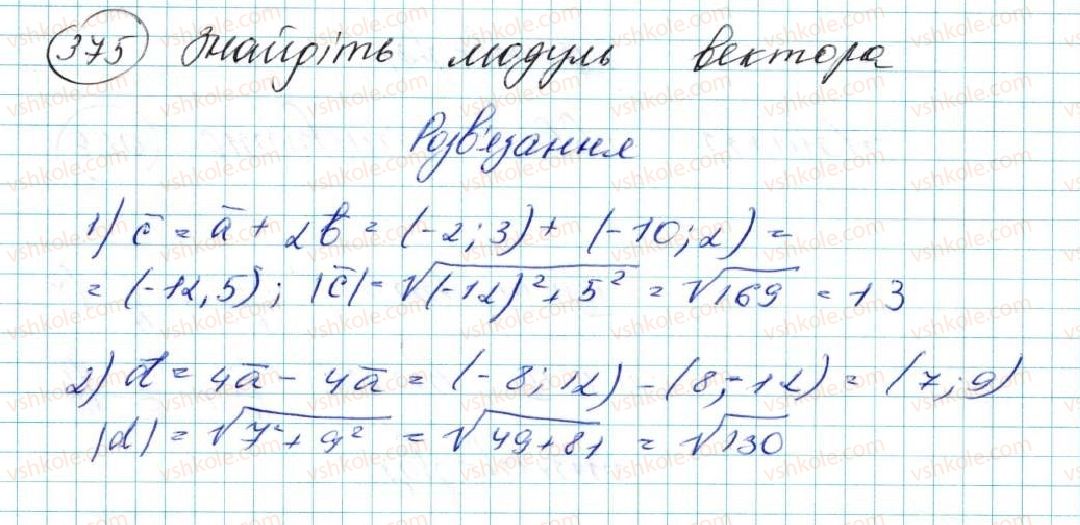 375 Знайдіть модуль вектора
Розв'язання
1) c̄ = ā + 2b̄ = (-2; 3) + (-10; 2) =
= (-12, 5); |c̄| = √((-12)² + 5²) = √169 = 13
2) d̄ = 4ā - 4ā = (-8; 12) - (8; -12) = (7; 9)
|d| = √(7² + 9²) = √(49 + 81) = √130